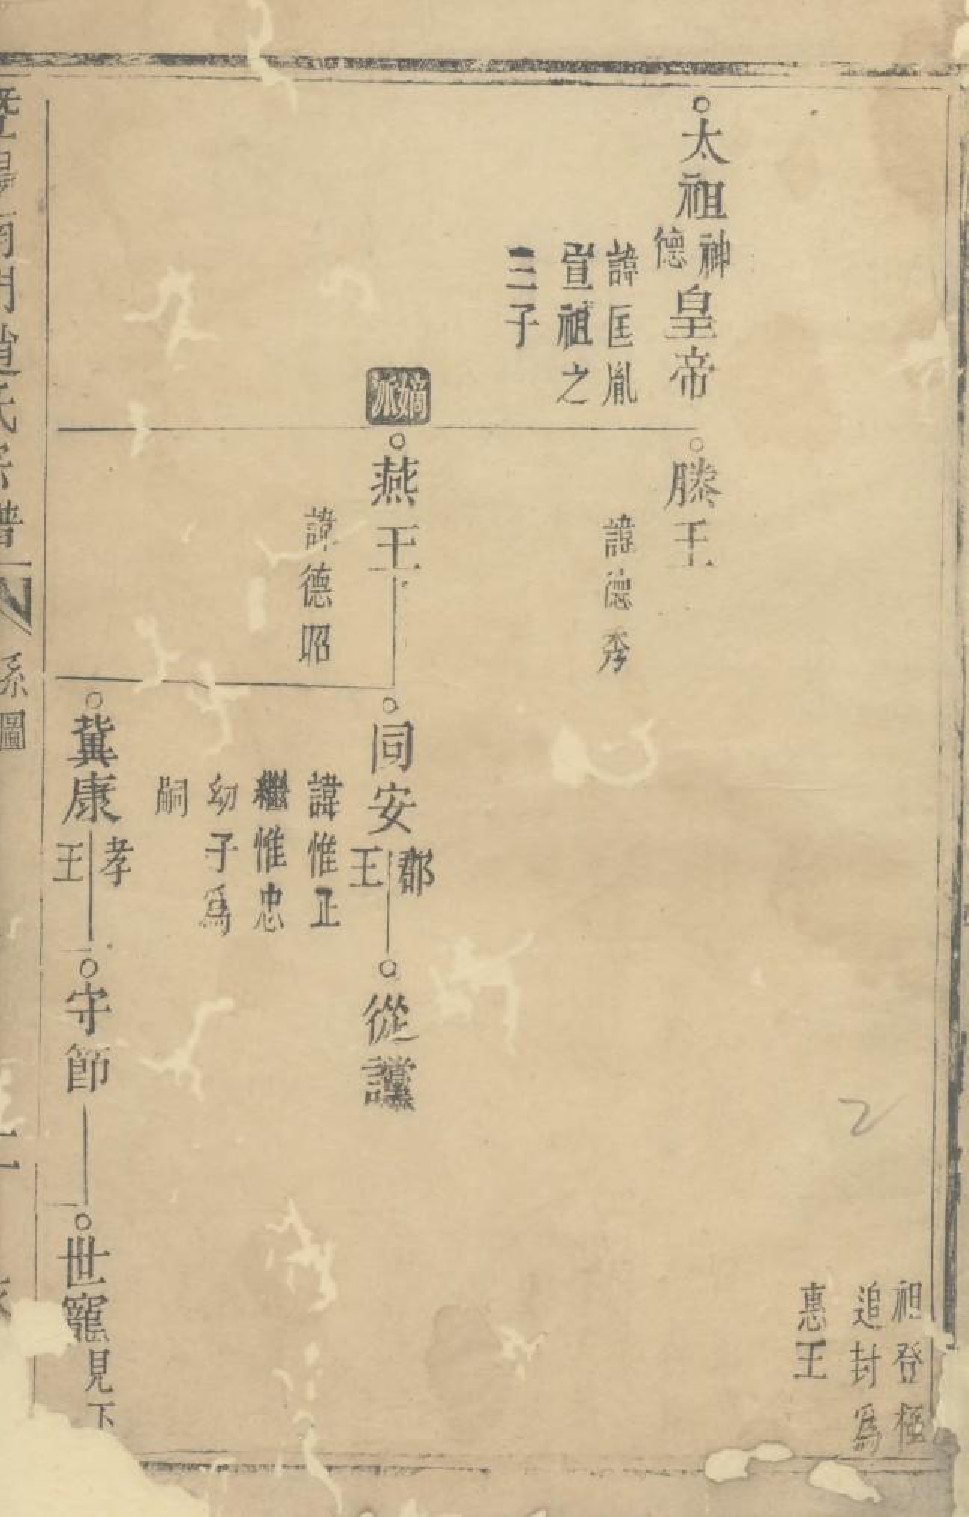 祖登極
追封爲
惠王
太祖神德皇帝
諱匡胤
宣祖之
三子
滕王
諱德秀
嫡派
燕王
諱德昭
同安郡王
諱惟正
繼惟忠
幼子爲
嗣
從讜
冀康孝王
守節
世寵見下
暨陽南門趙氏宗譜
系圖